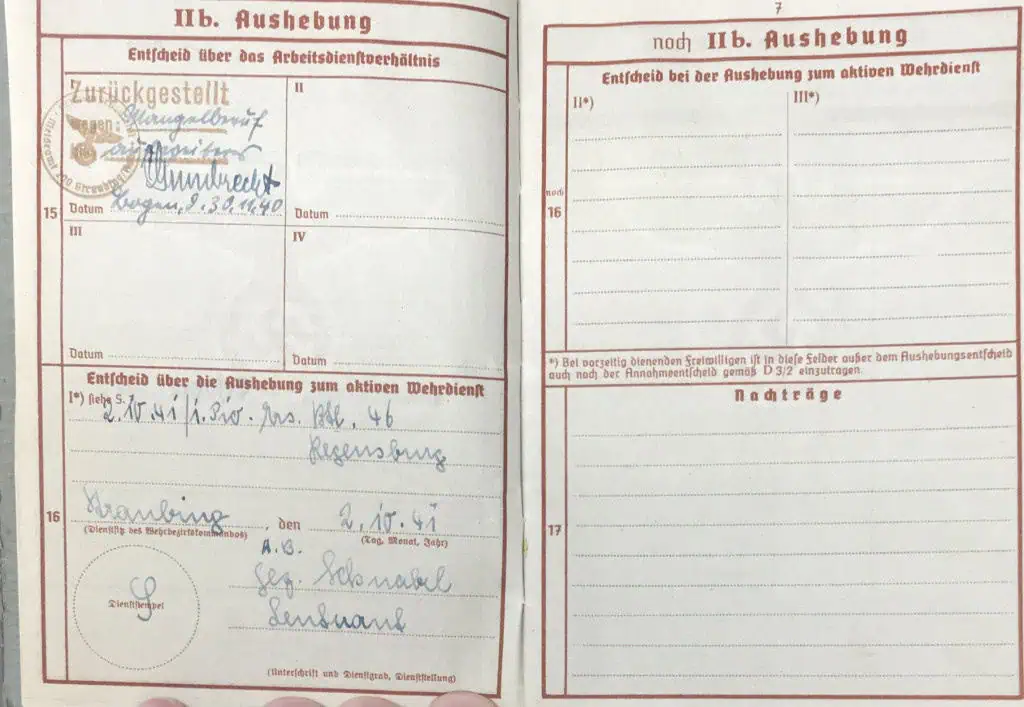 II b. Aushebung
Entscheid über das Arbeitsdienstverhältnis
15
Zurückgestellt
wegen: Mangelberuf
Gundrecht
Datum Bogen, d. 30.11.40
II
Datum
III
Datum
IV
Datum
16
Entscheid über die Aushebung zum aktiven Wehrdienst
I*) siehe S.
2.10.41/1. Pio. Ers. Btl. 46
Regensburg
Straubing, den 2.10.41
(Dienstsitz des Wehrbezirkskommandos) (Tag, Monat, Jahr)
A.B.
Gez. Schnabel
Leutnant
S
Dienststempel
(Unterschrift und Dienstgrad, Dienststellung)
7
noch II b. Aushebung
Entscheid bei der Aushebung zum aktiven Wehrdienst
noch
16
II*)
III*)
*) Bei vorzeitig dienenden Freiwilligen ist in diese Felder außer dem Aushebungsentscheid
auch noch der Annahmeentscheid gemäß D 3/2 einzutragen.
Nachträge
17